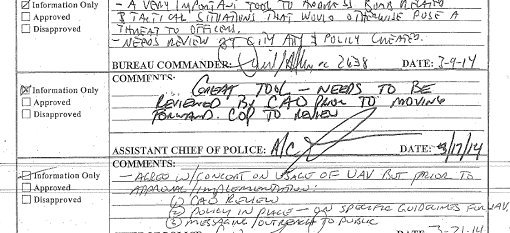 - A VERY IMPORTANT TOOL TO ADDRESS BOMB RELATED
Information Only
& TACTICAL SITUATIONS THAT WOULD OTHERWISE POSE A
Approved
THREAT TO OFFICERS.
Disapproved
- NEEDS REVIEW BY CITY ATTY & POLICY CREATED.
BUREAU COMMANDER: 2638 DATE: 3-9-14
COMMENTS:
GREAT TOOL - NEEDS TO BE
Information Only
REVIEWED BY CAO PRIOR TO MOVING
Approved
FORWARD. COP TO REVIEW
Disapproved
ASSISTANT CHIEF OF POLICE: A/C DATE: 3/17/14
COMMENTS:
Information Only
- AGREE W/CONCEPT ON USAGE OF UAV BUT PRIOR TO
Approved
APPROVAL/IMPLEMENTATION:
Disapproved
(1) CAO REVIEW
(2) POLICY IN PLACE - ON SPECIFIC GUIDELINES FOR UAV,
(3) MESSAGING/OUTREACH TO PUBLIC
3-21-14